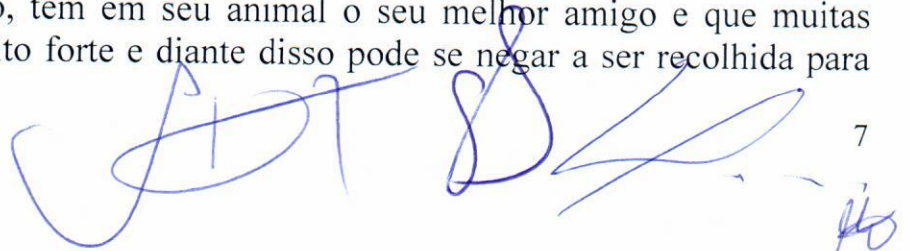 , tem em seu animal o seu melhor amigo e que muitas
to forte e diante disso pode se negar a ser recolhida para
7